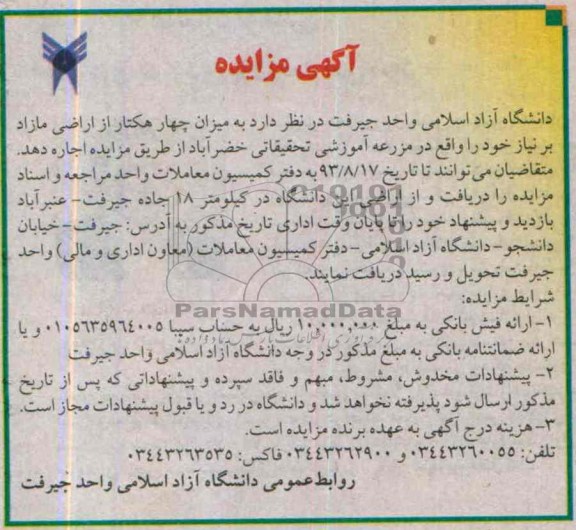 آگهی مزایده
دانشگاه آزاد اسلامی واحد جیرفت در نظر دارد به میزان چهار هکتار از اراضی مازاد
بر نیاز خود را واقع در مزرعه آموزشی تحقیقاتی خضرآباد از طریق مزایده اجاره دهد.
متقاضیان می‌توانند تا تاریخ ۹۳/۸/۱۷ به دفتر کمیسیون معاملات واحد مراجعه و اسناد
مزایده را دریافت و از اراضی این دانشگاه در کیلومتر ۱۸ جاده جیرفت- عنبرآباد
بازدید و پیشنهاد خود را تا پایان وقت اداری تاریخ مذکور به آدرس: جیرفت-خیابان
دانشجو-دانشگاه آزاد اسلامی-دفتر کمیسیون معاملات (معاون اداری و مالی) واحد
جیرفت تحویل و رسید دریافت نمایند.
شرایط مزایده:
ParsNamadData
۱- ارائه فیش بانکی به مبلغ ۱۰,۰۰۰,۰۰۰ ریال به حساب سیبا ۰۱۰۵۶۳۵۹۶۴۰۰۵ و یا
ارائه ضمانتنامه بانکی به مبلغ مذکور در وجه دانشگاه آزاد اسلامی واحد جیرفت
۲- پیشنهادات مخدوش، مشروط، مبهم و فاقد سپرده و پیشنهاداتی که پس از تاریخ
مذکور ارسال شود پذیرفته نخواهد شد و دانشگاه در رد و یا قبول پیشنهادات مجاز است.
۳- هزینه درج آگهی به عهده برنده مزایده است.
تلفن: ۰۳۴۴۳۲۶۰۰۵۵ و ۰۳۴۴۳۲۶۲۹۰۰ فاکس: ۰۳۴۴۳۲۶۳۵۳۵
روابط عمومی دانشگاه آزاد اسلامی واحد جیرفت